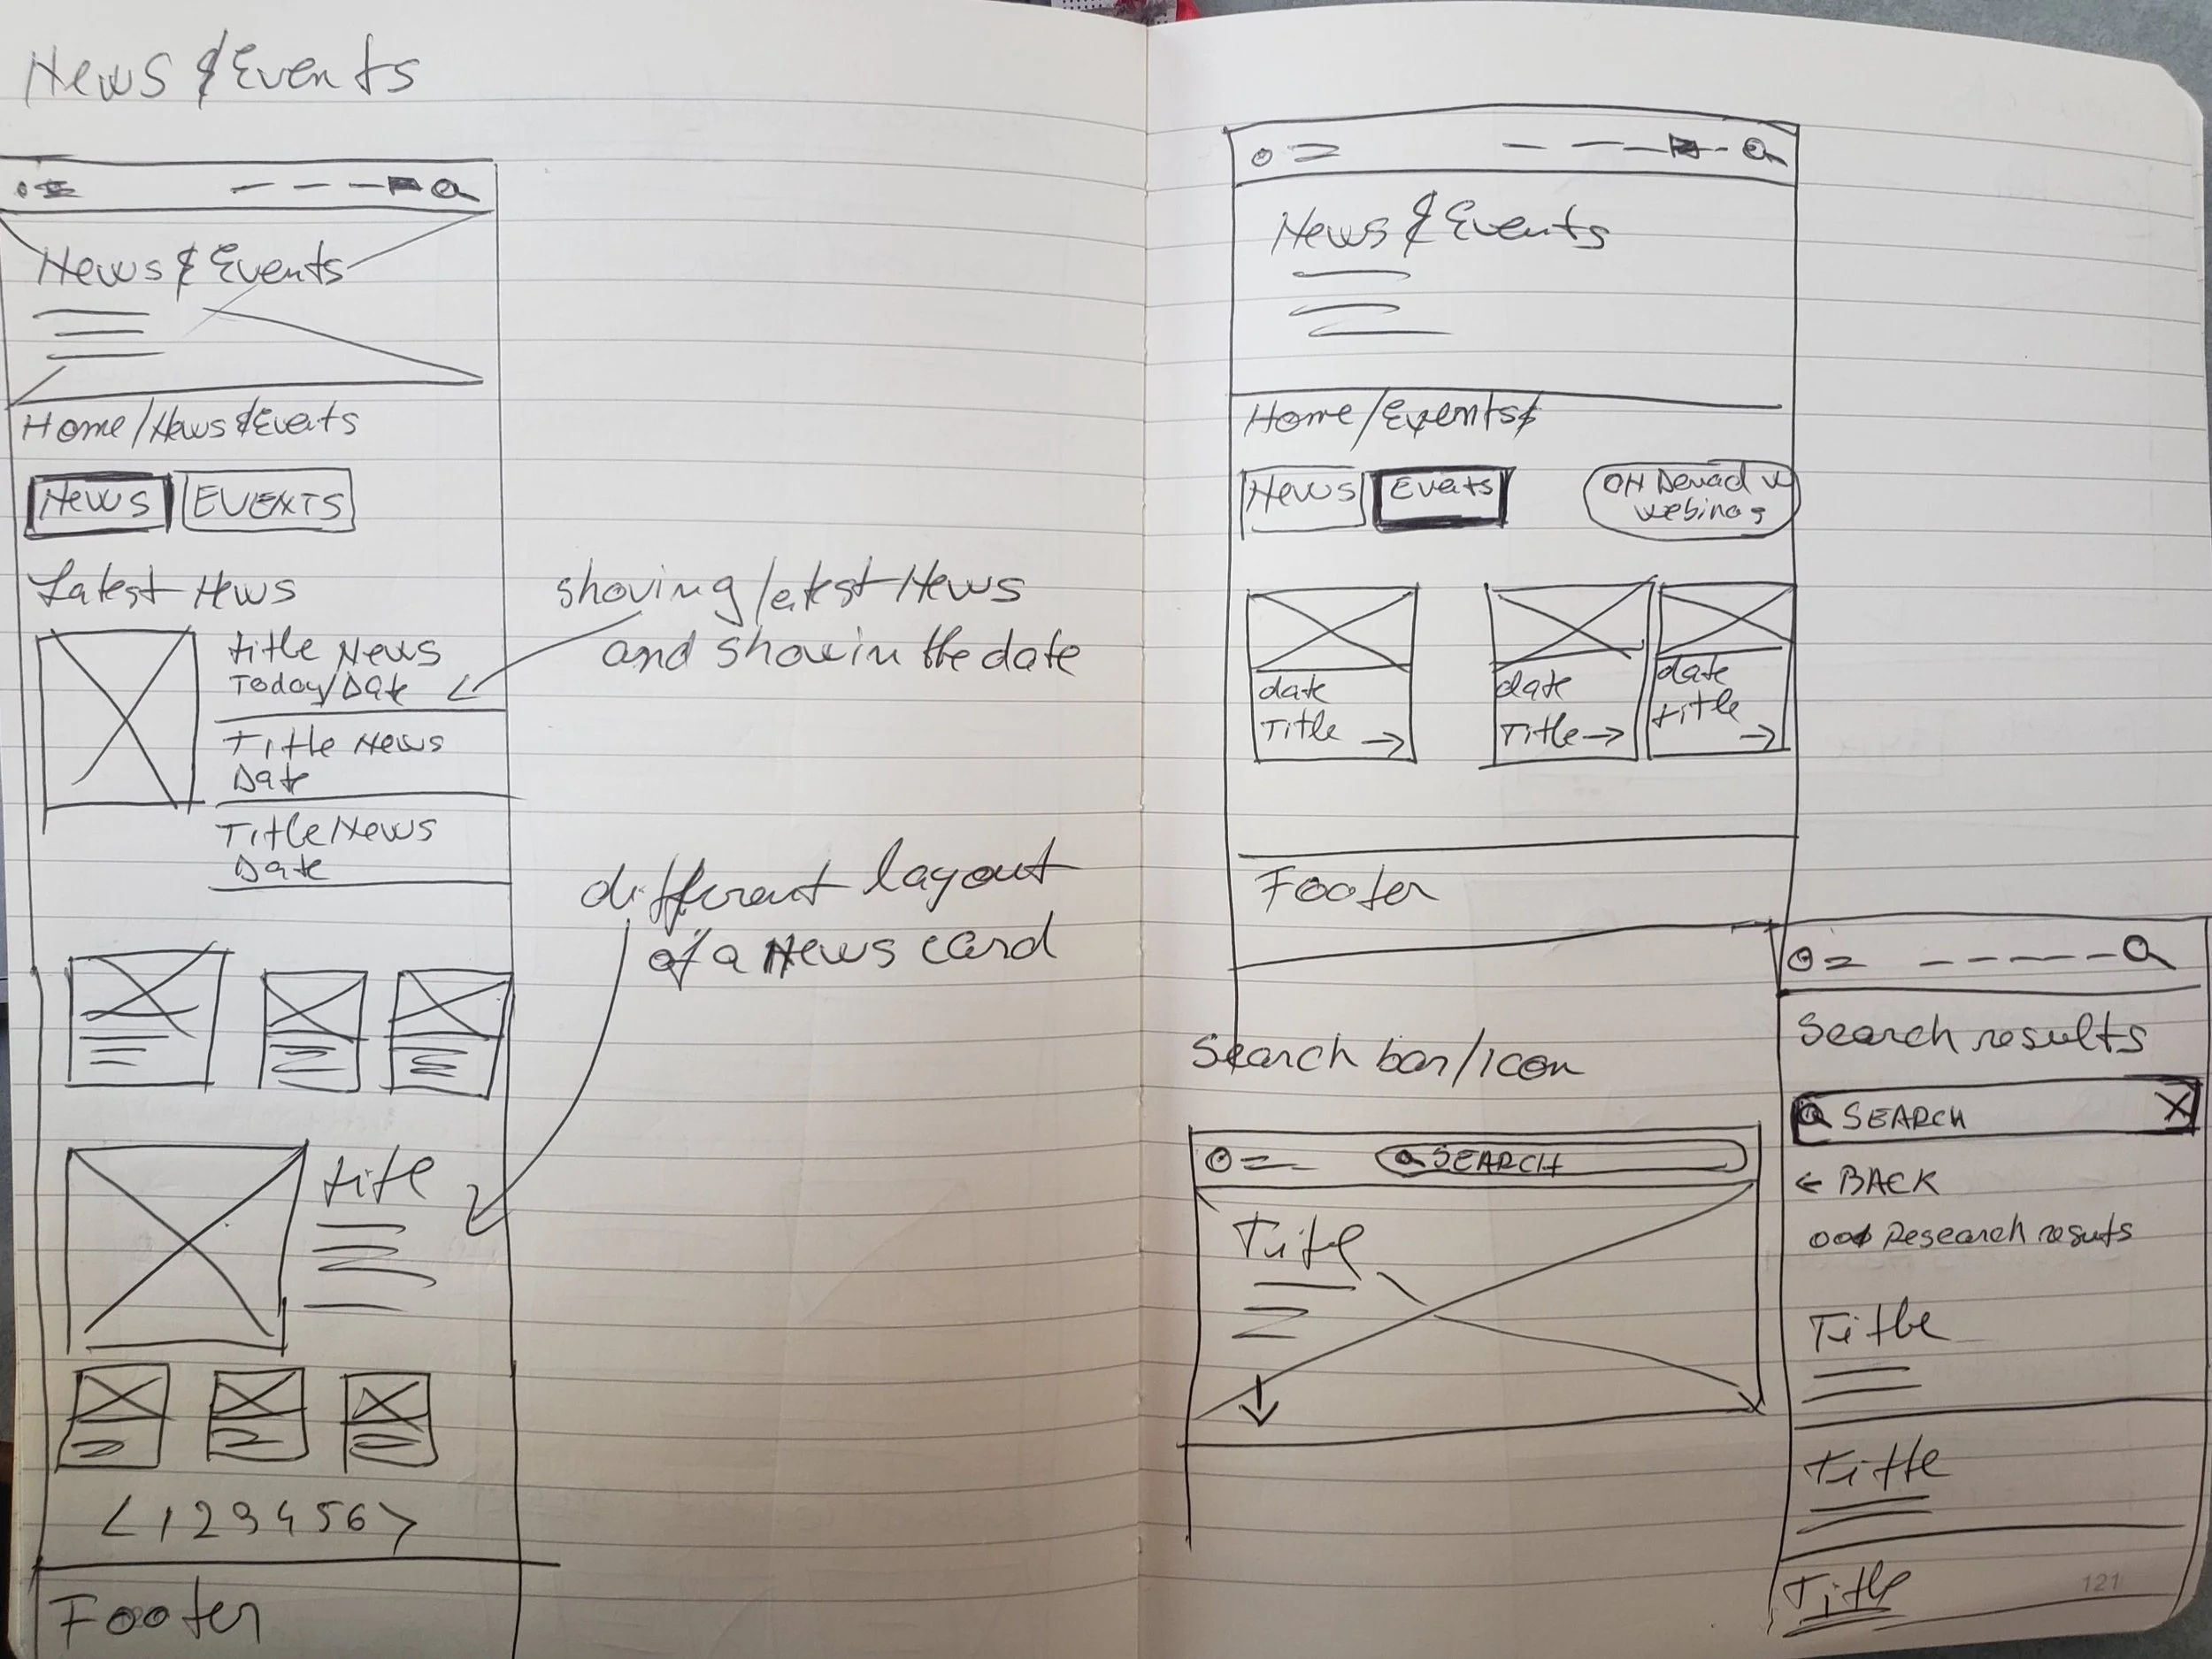 News & Events
News & Events
Home/News & Events
News
EVENTS
Latest News
title News
Today/Date
Title News
Date
Title News
Date
shoving latest News
and showin the date
different layout
of a News card
title
< 1 2 3 4 5 6 >
Footer
News & Events
Home/Events
News
Events
ON Demad
webinas
date
Title →
date
Title →
date
title
→
Footer
Search bar/icon
SEARCH
Title
Search results
SEARCH X
← BACK
Research resuts
Title
Title
Title
121